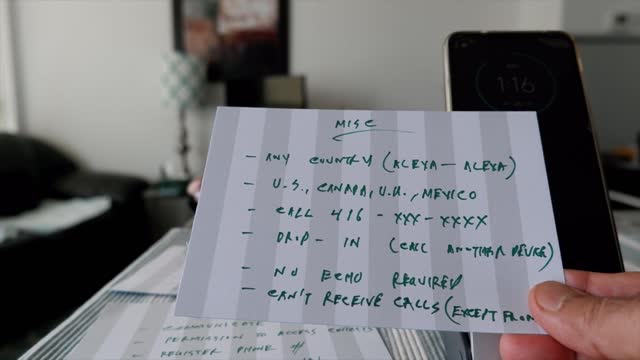 MISC
1:16
- ANY COUNTRY (ALEXA - ALEXA)
- U.S., CANADA, U.K., MEXICO
- CALL 416 - XXX - XXXX
- DROP - IN (CALL ANOTHER DEVICE)
- NO ECHO REQUIRED
- CAN'T RECEIVE CALLS (EXCEPT FROM
- COMMUNICATE
- PERMISSION TO ACCESS CONTACTS
- REGISTER PHONE #